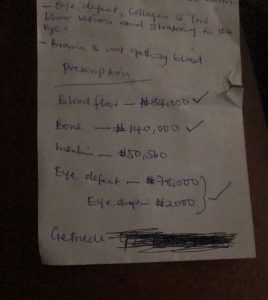 - Eye defect, Collagen is low
blur vision and shaking in the
eye.
- Brain is not getting blood.
Prescription
Blood flow — ₦84,000 ✓
Bone — ₦140,000 ✓
— ₦50,560
Eye defect — ₦78,000
Eye drop ₦2000 ✓
Getrude -